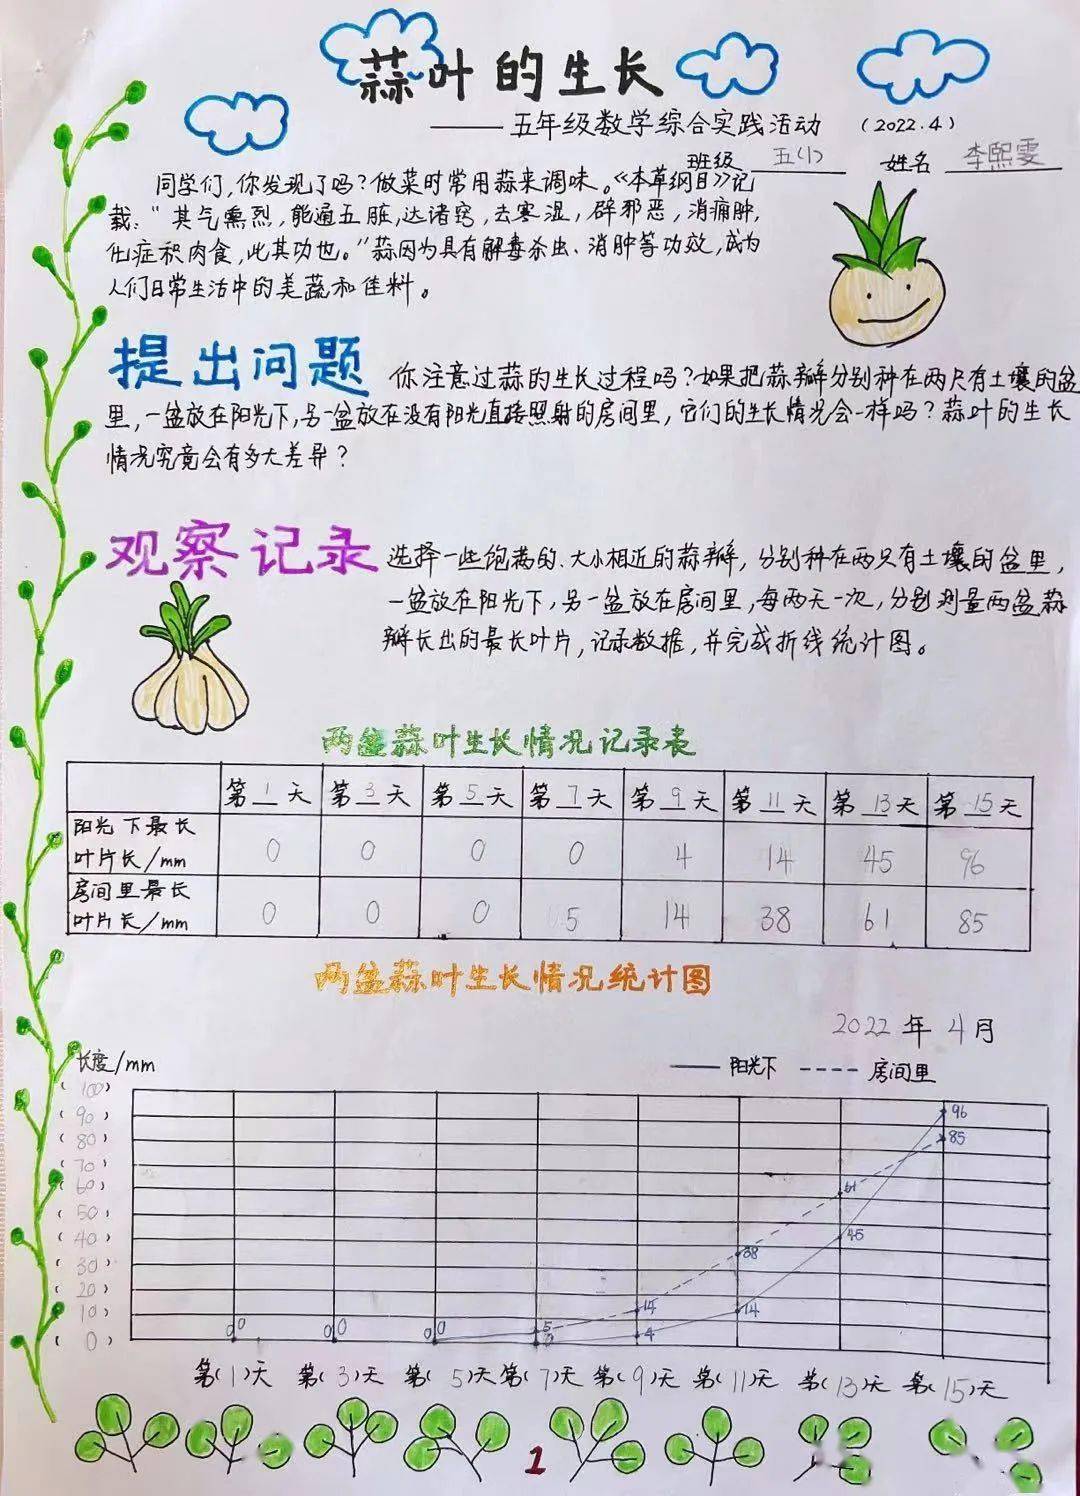 蒜叶的生长
——五年级数学综合实践活动 (2022.4)
班级 五(1) 姓名 李熙雯
同学们,你发现了吗?做菜时常用蒜来调味。《本草纲目》记
载:"其气熏烈,能通五脏,达诸窍,去寒湿,辟邪恶,消痈肿,
化症积肉食,此其功也。"蒜因为具有解毒杀虫、消肿等功效,成为
人们日常生活中的美蔬和佳料。
提出问题 你注意过蒜的生长过程吗?如果把蒜瓣分别种在两只有土壤的盆
里,一盆放在阳光下,另一盆放在没有阳光直接照射的房间里,它们的生长情况会一样吗?蒜叶的生长
情况究竟会有多大差异?
观察记录 选择一些饱满的、大小相近的蒜瓣,分别种在两只有土壤的盆里,
一盆放在阳光下,另一盆放在房间里,每两天一次,分别测量两盆蒜
瓣长出的最长叶片,记录数据,并完成折线统计图。
两盆蒜叶生长情况记录表
第1天 第3天 第5天 第7天 第9天 第11天 第13天 第15天
阳光下最长
叶片长/mm 0 0 0 0 4 14 45 96
房间里最长
叶片长/mm 0 0 0 5 14 38 61 85
两盆蒜叶生长情况统计图
2022年4月
长度/mm —— 阳光下 ---- 房间里
(100)
(90) 96
(80) 85
(70)
(60) 61
(50)
(40) 45
(30) 38
(20)
(10) 14 14
(0) 0 0 0 0 0 0 5 0 4
第(1)天 第(3)天 第(5)天 第(7)天 第(9)天 第(11)天 第(13)天 第(15)天
1